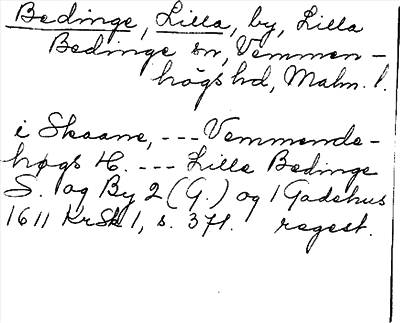 Bedinge, Lilla, by, Lilla
Bedinge sn, Vemmen-
högs hd, Malm. l.
i Skaane, --- Vemmende-
høgs H. --- Lille Bedinge
S. og By 2 (G.) og 1 Gadehus
1611 KrSk 1, s. 371. regest.